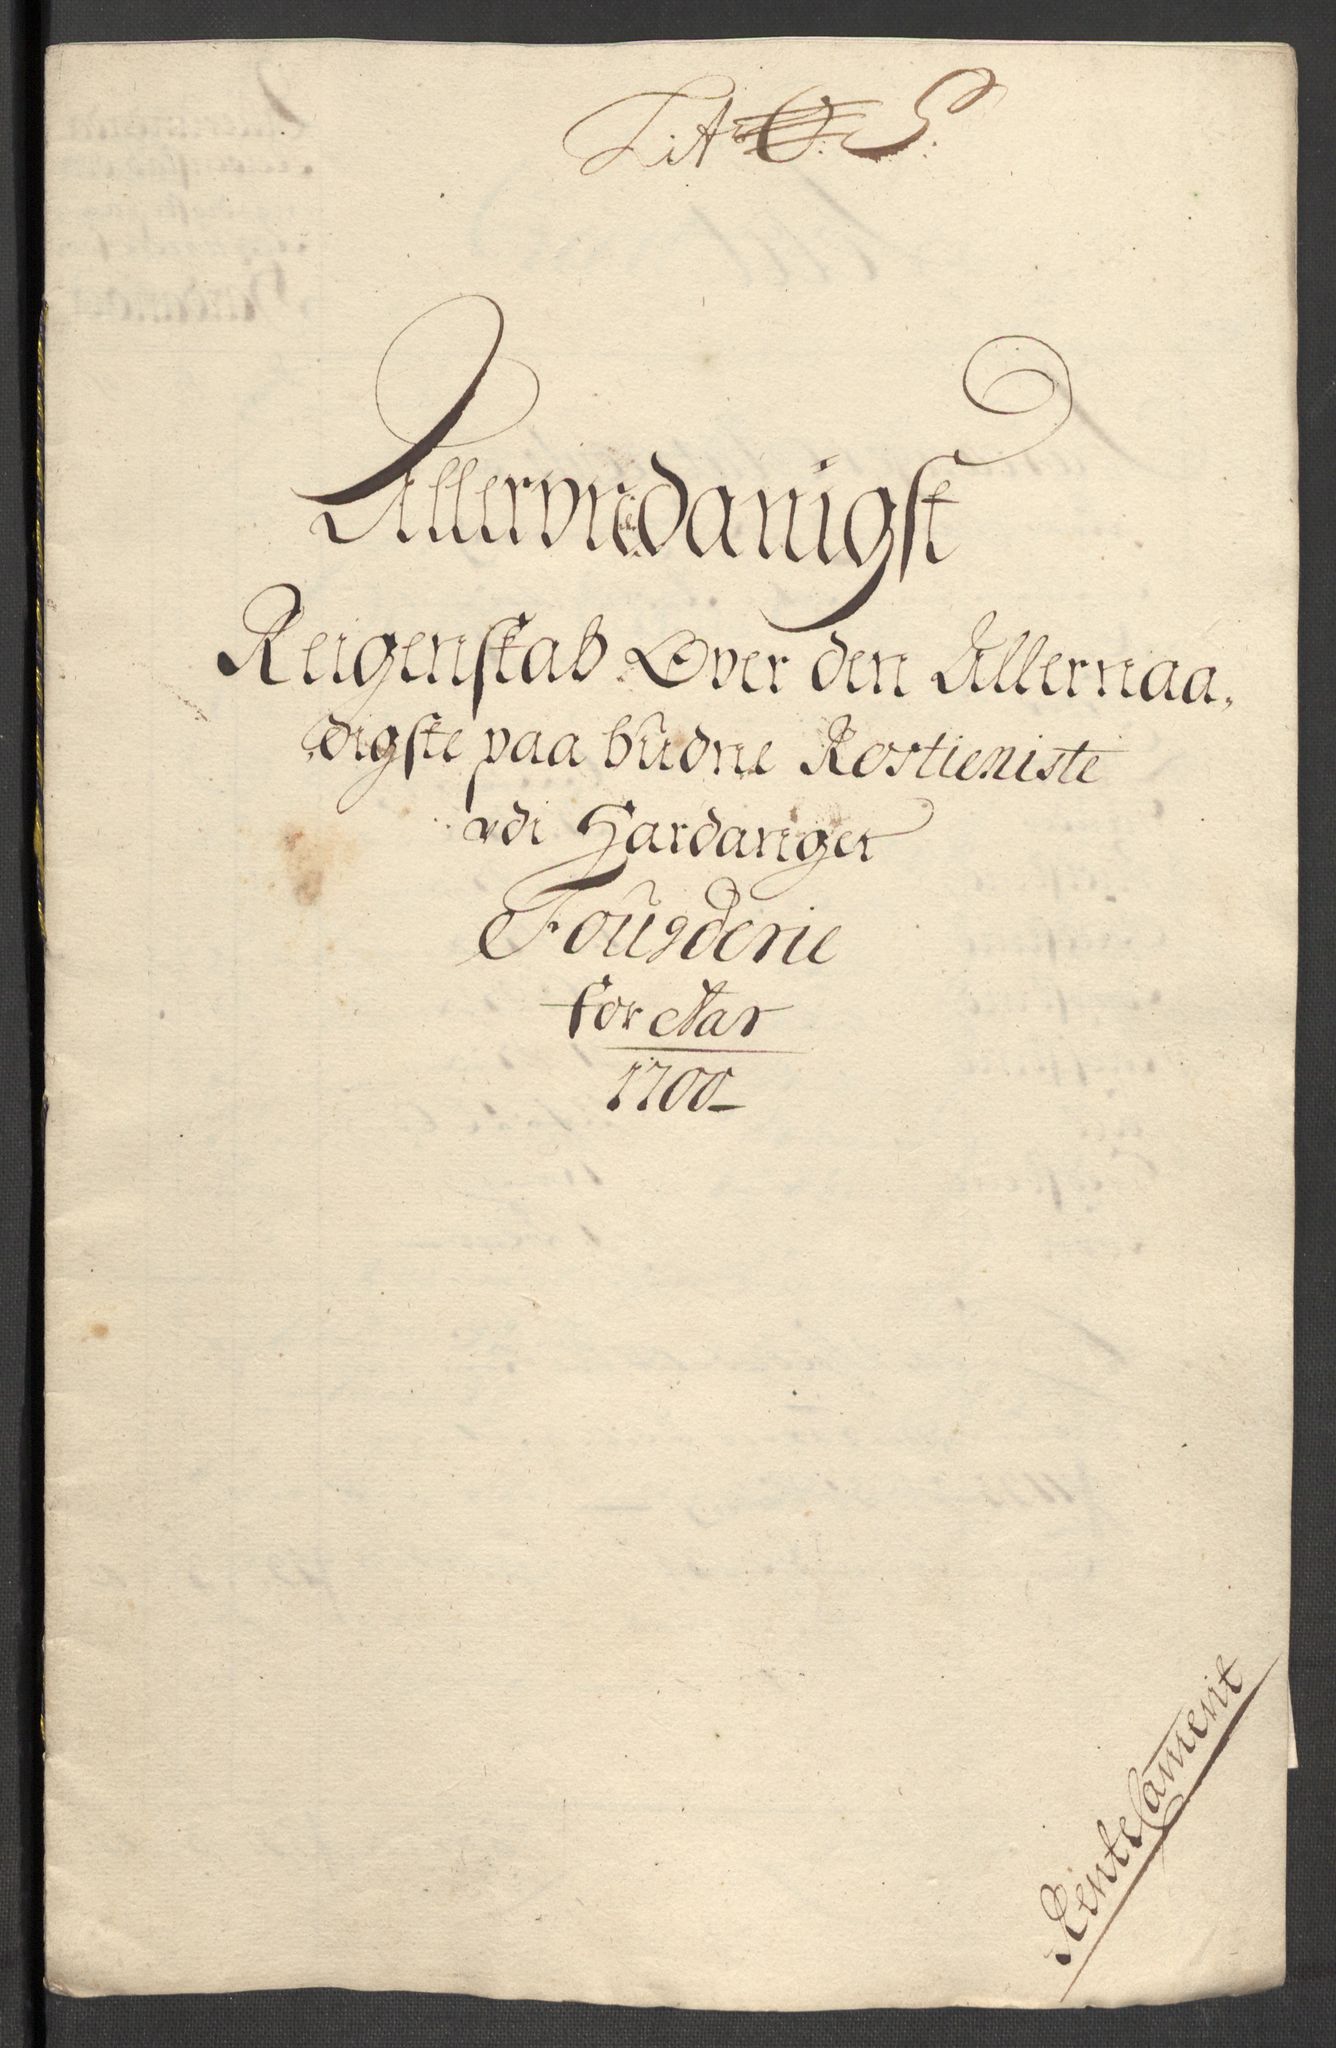 Litr: O. S.
Allervndanigst
Reigenskab Over den Allernaa,
digste paa budne Rostieniste
vdi Hardanger
Fougderie
for Aar
1700
RenteCament